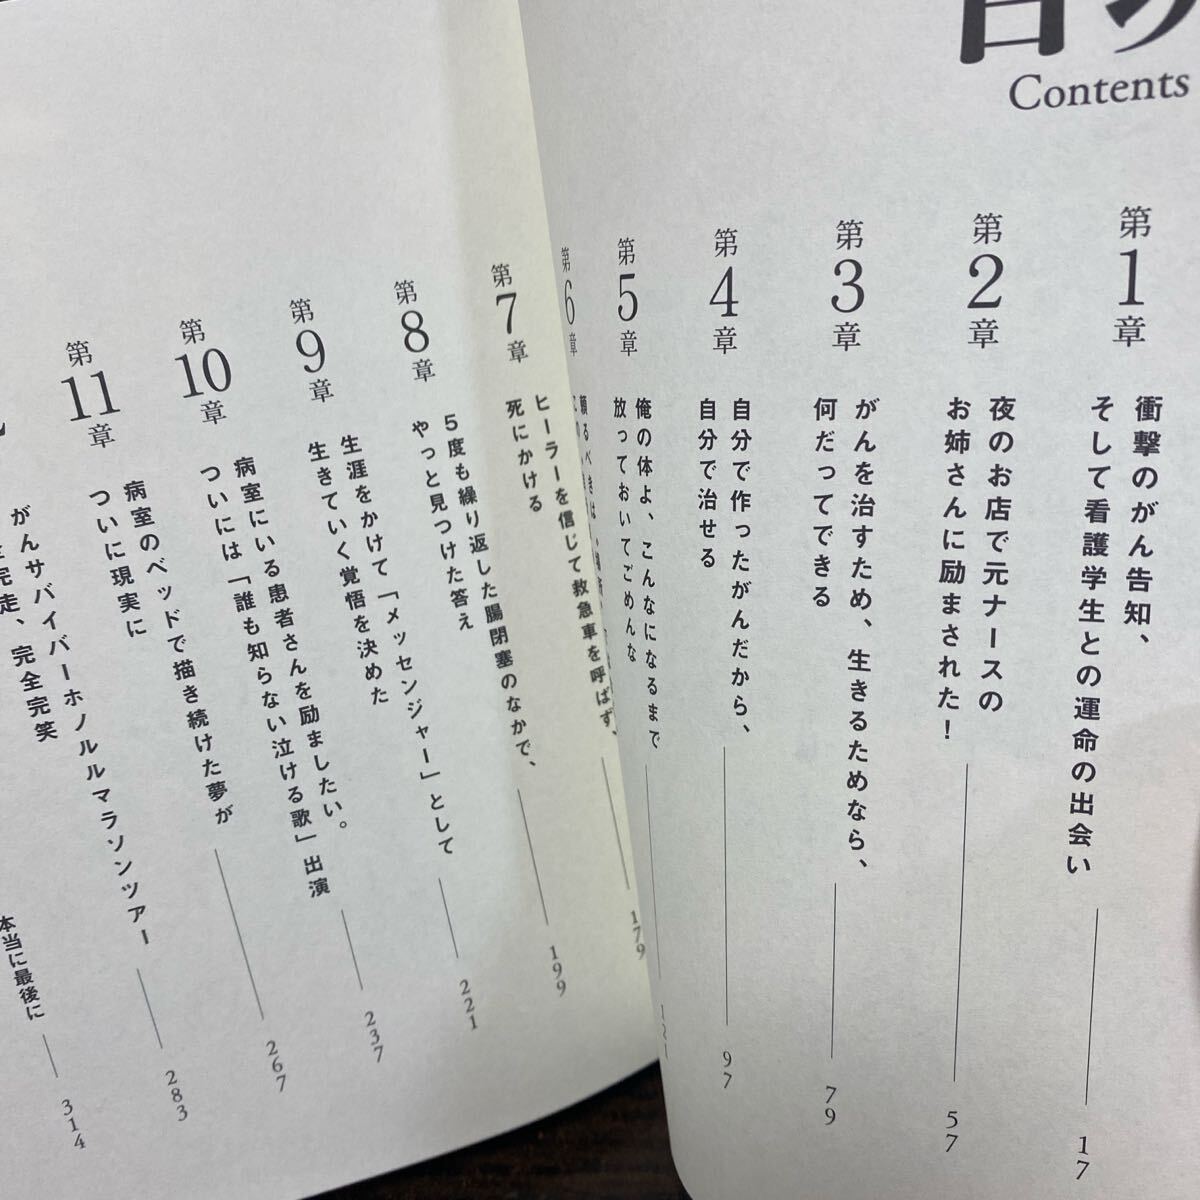 Contents
第1章
衝撃のがん告知、
そして看護学生との運命の出会い
17
第2章
夜のお店で元ナースの
お姉さんに励まされた!
57
第3章
がんを治すため、生きるためなら、
何だってできる
79
第4章
自分で作ったがんだから、
自分で治せる
97
第5章
俺の体よ、こんなになるまで
放っておいてごめんな
第6章
頼るべきは、
第7章
ヒーラーを信じて救急車を呼ばず、
死にかける
179
第8章
5度も繰り返した腸閉塞のなかで、
やっと見つけた答え
199
第9章
生涯をかけて「メッセンジャー」として
生きていく覚悟を決めた
221
第10章
病室にいる患者さんを励ましたい。
ついには「誰も知らない泣ける歌」出演
237
第11章
病室のベッドで描き続けた夢が
ついに現実に
267
がんサバイバーホノルルマラソンツアー
完走、完全完笑
283
本当に最後に
314